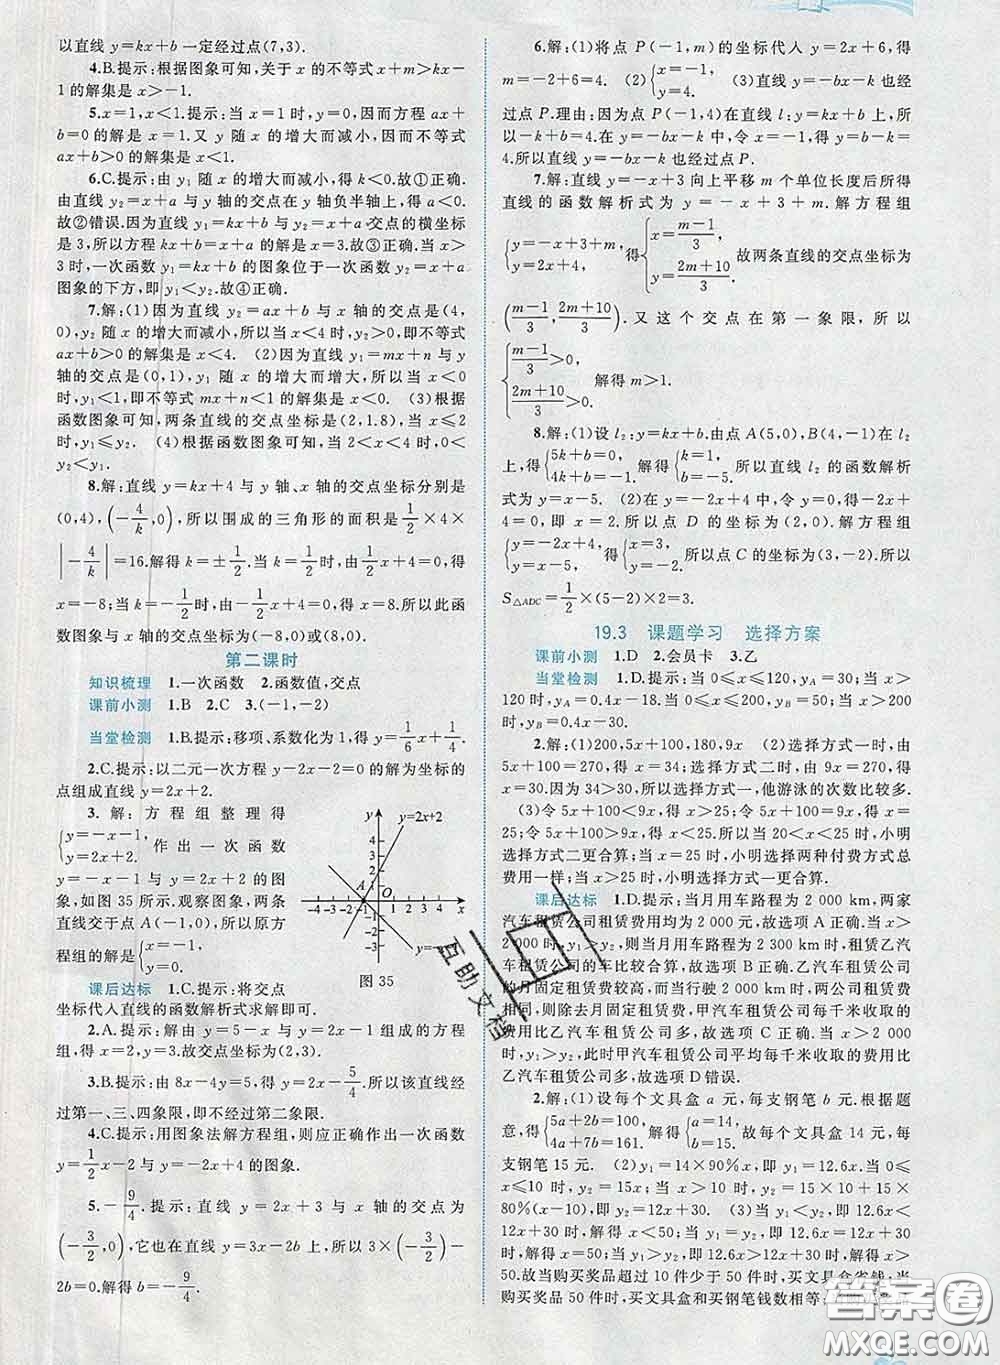 以直线 y=kx+b 一定经过点(7,3).
4.B.提示:根据图象可知,关于 x 的不等式 x+m>kx-
1 的解集是 x>-1.
5.x=1,x<1.提示:当 x=1 时,y=0,因而方程 ax+
b=0 的解是 x=1.又 y 随 x 的增大而减小,因而不等式
ax+b>0 的解集是 x<1.
6.C.提示:由 y₁ 随 x 的增大而减小,得 k<0.故①正确.
由直线 y₂=x+a 与 y 轴的交点在 y 轴负半轴上,得 a<0.
故②错误.因为直线 y₁=kx+b 与 y₂=x+a 交点的横坐标
是 3,所以方程 kx+b=x+a 的解是 x=3.故③正确.当 x>
3 时,一次函数 y₁=kx+b 的图象位于一次函数 y₂=x+a
图象的下方,即 y₁<y₂.故④正确.
7.解:(1)因为直线 y₂=ax+b 与 x 轴的交点是(4,
0),y₂ 随 x 的增大而减小,所以当 x<4 时,y₂>0,即不等式
ax+b>0 的解集是 x<4. (2)因为直线 y₁=mx+n 与 y
轴的交点是(0,1),y₁ 随 x 的增大而增大,所以当 x<0
时,y₁<1,即不等式 mx+n<1 的解集是 x<0. (3)根据
函数图象可知,两条直线的交点坐标是(2,1.8),当 x≤2
时,y₁≤y₂. (4)根据函数图象可知,当 2<x<4 时,0<
y₂<y₁.
8.解:直线 y=kx+4 与 y 轴、x 轴的交点坐标分别是
(0,4),(-4/k,0),所以围成的三角形的面积是 1/2×4×
|-4/k|=16.解得 k=±1/2.当 k=1/2 时,由 1/2x+4=0,得
x=-8;当 k=-1/2 时,由-1/2x+4=0,得 x=8.所以此函
数图象与 x 轴的交点坐标为(-8,0)或(8,0).
第二课时
知识梳理 1.一次函数 2.函数值,交点
课前小测 1.B 2.C 3.(-1,-2)
当堂检测 1.B.提示:移项、系数化为 1,得 y=1/6x+1/4.
2.C.提示:以二元一次方程 y-2x-2=0 的解为坐标的
点组成直线 y=2x+2.
3.解:方程组整理得
{y=-x-1, y=2x+2. 作出一次函数
y=-x-1 与 y=2x+2 的图象,
如图 35 所示.观察图象,两条
直线交于点 A(-1,0),所以原方
程组的解是{x=-1, y=0.
y y=2x+2
4
3
2
1
A O
-4 -3 -2 -1 1 2 3 4 x
-1
-2
-3
图 35
课后达标 1.C.提示:将交点
坐标代入直线的函数解析式求解即可.
2.A.提示:解由 y=5-x 与 y=2x-1 组成的方程
组,得{x=2, y=3.故交点坐标为(2,3).
3.B.提示:由 8x-4y=5,得 y=2x-5/4.所以该直线经
过第一、三、四象限,即不经过第二象限.
4.C.提示:用图象法解方程组,则应正确作出一次函数
y=1/2x-2 与 y=-2x+4 的图象.
5.-9/4.提示:直线 y=2x+3 与 x 轴的交点为
(-3/2,0),它也在直线 y=3x-2b 上,所以 3×(-3/2)-
2b=0.解得 b=-9/4.
6.解:(1)将点 P(-1,m)的坐标代入 y=2x+6,得
m=-2+6=4. (2){x=-1, y=4. (3)直线 y=-bx-k 也经
过点 P.理由:因为点 P(-1,4)在直线 l:y=kx+b 上,所
以-k+b=4.在 y=-bx-k 中,令 x=-1,得 y=b-k=
4.所以直线 y=-bx-k 也经过点 P.
7.解:直线 y=-x+3 向上平移 m 个单位长度后所得
直线的函数解析式为 y=-x+3+m.解方程组
{y=-x+3+m, y=2x+4. 得{x=(m-1)/3, y=(2m+10)/3. 故两条直线的交点坐标为
((m-1)/3,(2m+10)/3).又这个交点在第一象限,所以
{(m-1)/3>0, (2m+10)/3>0. 解得 m>1.
8.解:(1)设 l₂:y=kx+b.由点 A(5,0),B(4,-1)在 l₂
上,得{5k+b=0, 4k+b=-1. 解得{k=1, b=-5. 所以直线 l₂ 的函数解析
式为 y=x-5. (2)在 y=-2x+4 中,令 y=0,得-2x+
4=0,即 x=2.所以点 D 的坐标为(2,0).解方程组
{y=-2x+4, y=x-5. 得{x=3, y=-2. 所以点 C 的坐标为(3,-2).所以
S△ADC=1/2×(5-2)×2=3.
19.3 课题学习 选择方案
课前小测 1.D 2.会员卡 3.乙
当堂检测 1.D.提示:当 0≤x≤120,yA=30;当 x>
120 时,yA=0.4x-18.当 0≤x≤200,yB=50;当 x>200
时,yB=0.4x-30.
2.解:(1)200,5x+100,180,9x (2)选择方式一时,由
5x+100=270,得 x=34;选择方式二时,由 9x=270,得
x=30.因为 34>30,所以选择方式一,他游泳的次数比较多.
(3)令 5x+100<9x,得 x>25;令 5x+100=9x,得 x=
25;令 5x+100>9x,得 x<25.所以当 20<x<25 时,小明
选择方式二更合算;当 x=25 时,小明选择两种付费方式总
费用一样;当 x>25 时,小明选择方式一更合算.
课后达标 1.D.提示:当月用车路程为 2 000 km,两家
汽车租赁公司租赁费用均为 2 000 元,故选项 A 正确.当 x>
2 000 时,y₁>y₂,则当月用车路程为 2 300 km 时,租赁乙汽
车租赁公司的车比较合算,故选项 B 正确.乙汽车租赁公司
的月固定租赁费较高,而当行驶 2 000 km 时,两家租赁费
相同,则除去月固定租赁费,甲汽车租赁公司每千米收取的
费用比乙汽车租赁公司多,故选项 C 正确.当 x>2 000
时,y₁>y₂,此时甲汽车租赁公司平均每千米收取的费用比
乙汽车租赁公司多,故选项D错误.
2.解:(1)设每个文具盒 a 元,每支钢笔 b 元.根据题
意,得{5a+2b=100, 4a+7b=161. 解得{a=14, b=15. 故每个文具盒 14 元,每
支钢笔 15 元. (2)y₁=14×90%x,即 y₁=12.6x.当 0≤
x≤10 时,y₂=15x;当 x>10 时,y₂=15×10+15×
80%(x-10),即 y₂=12x+30. (3)当 y₁<y₂,即 12.6x<
12x+30 时,解得 x<50;当 y₁=y₂,即 12.6x=12x+30
时,解得 x=50;当 y₁>y₂,即 12.6x>12x+30 时,解得 x>
50.故当购买奖品超过 10 件少于 50 件时,买文具盒省钱;当
购买奖品 50 件时,买文具盒和买钢笔钱数相等;
互助文档
答案圈
MXQE.COM